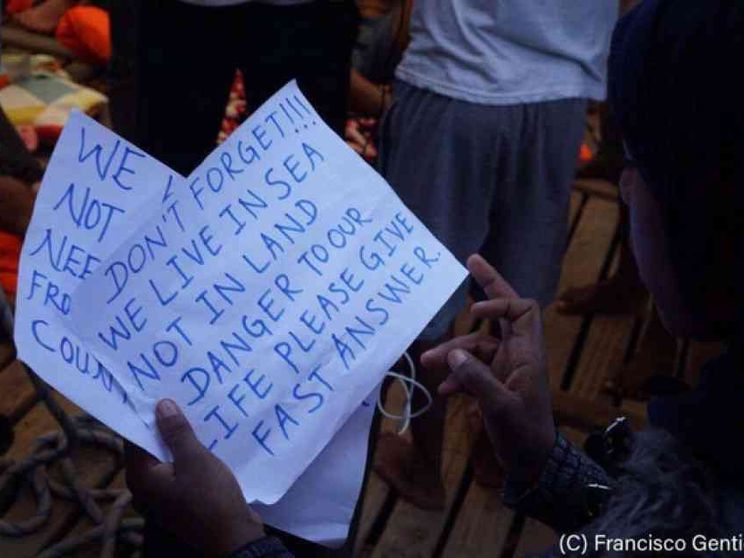 WE
NOT
NEE
FRO
COUN
DON'T FORGET!!!
WE LIVE IN SEA
NOT IN LAND
DANGER TO OUR
LIFE PLEASE GIVE
FAST ANSWER.
(C) Francisco Genti